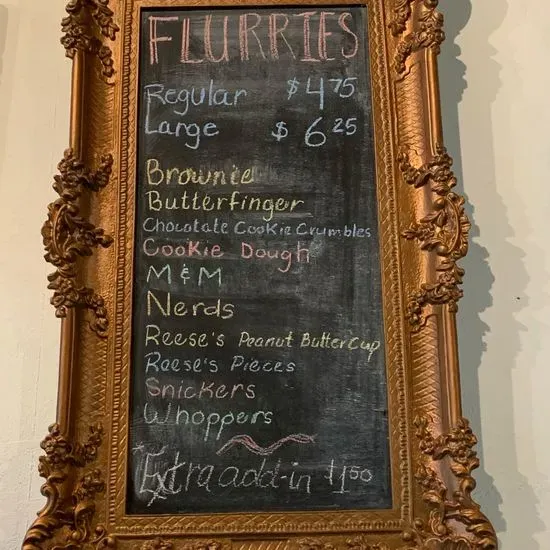 FLURRIES
Regular $4.75
Large $6.25
Brownie
Butterfinger
Chocolate Cookie Crumbles
Cookie Dough
M & M
Nerds
Reese's Peanut Butter Cup
Reese's Pieces
Snickers
Whoppers
*Extra add-in $1.50